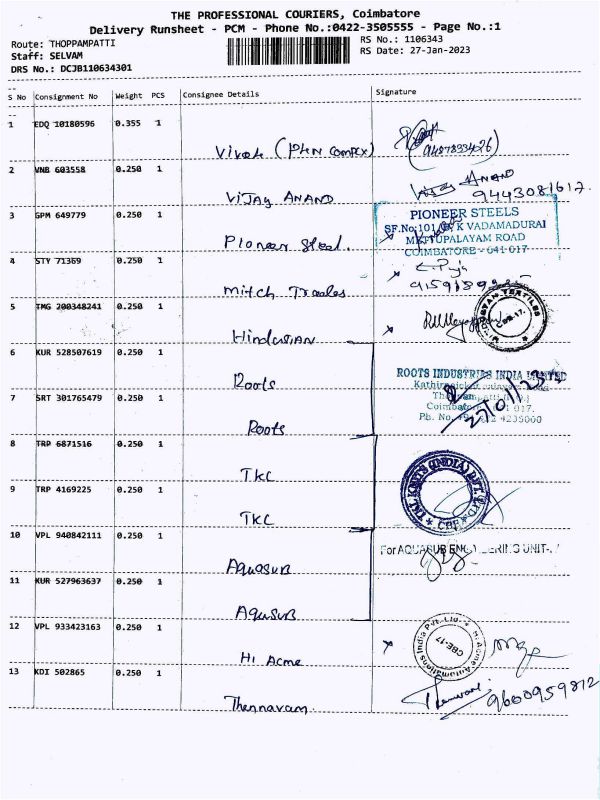 THE PROFESSIONAL COURIERS, Coimbatore
Delivery Runsheet - PCM - Phone No.:0422-3505555 - Page No.:1
Route: THOPPAMPATTI
RS No.: 1106343
Staff: SELVAM
RS Date: 27-Jan-2023
DRS No.: DCJB110634301
S No Consignment No Weight PCS Consignee Details Signature
1 EDQ 10180596 0.355 1
2 VNB 603558 0.250 1
VIJAY ANAND
VIJAY ANAND
9443081617.
3 GPM 649779 0.250 1
Pioneer Steel.
PIONEER STEELS
VADAMADURAI
METTUPALAYAM ROAD
COIMBATORE - 641 017
4 STY 71369 0.250 1
Mitch Trades
5 TMG 200348241 0.250 1
Hindustan
HINDUSTAN TEXTILES
CBE-17.
6 KUR 528507619 0.250 1
Roots
ROOTS INDUSTRIES INDIA LIMITED
7 SRT 301765479 0.250 1
Roots
Coimbatore
27/01/23
8 TRP 6871516 0.250 1
TKC
9 TRP 4169225 0.250 1
TKC
KNITS (INDIA) PVT. LTD
CBE
10 VPL 940842111 0.250 1
Aquasub
For AQUASUB ENGINEERING UNIT-
11 KUR 527963637 0.250 1
Aqusub
12 VPL 933423163 0.250 1
Hi Acme
Hi Acme Automations India Pvt. Ltd.
CBE-17
13 KDI 502865 0.250 1
Thennavam.
9600959812